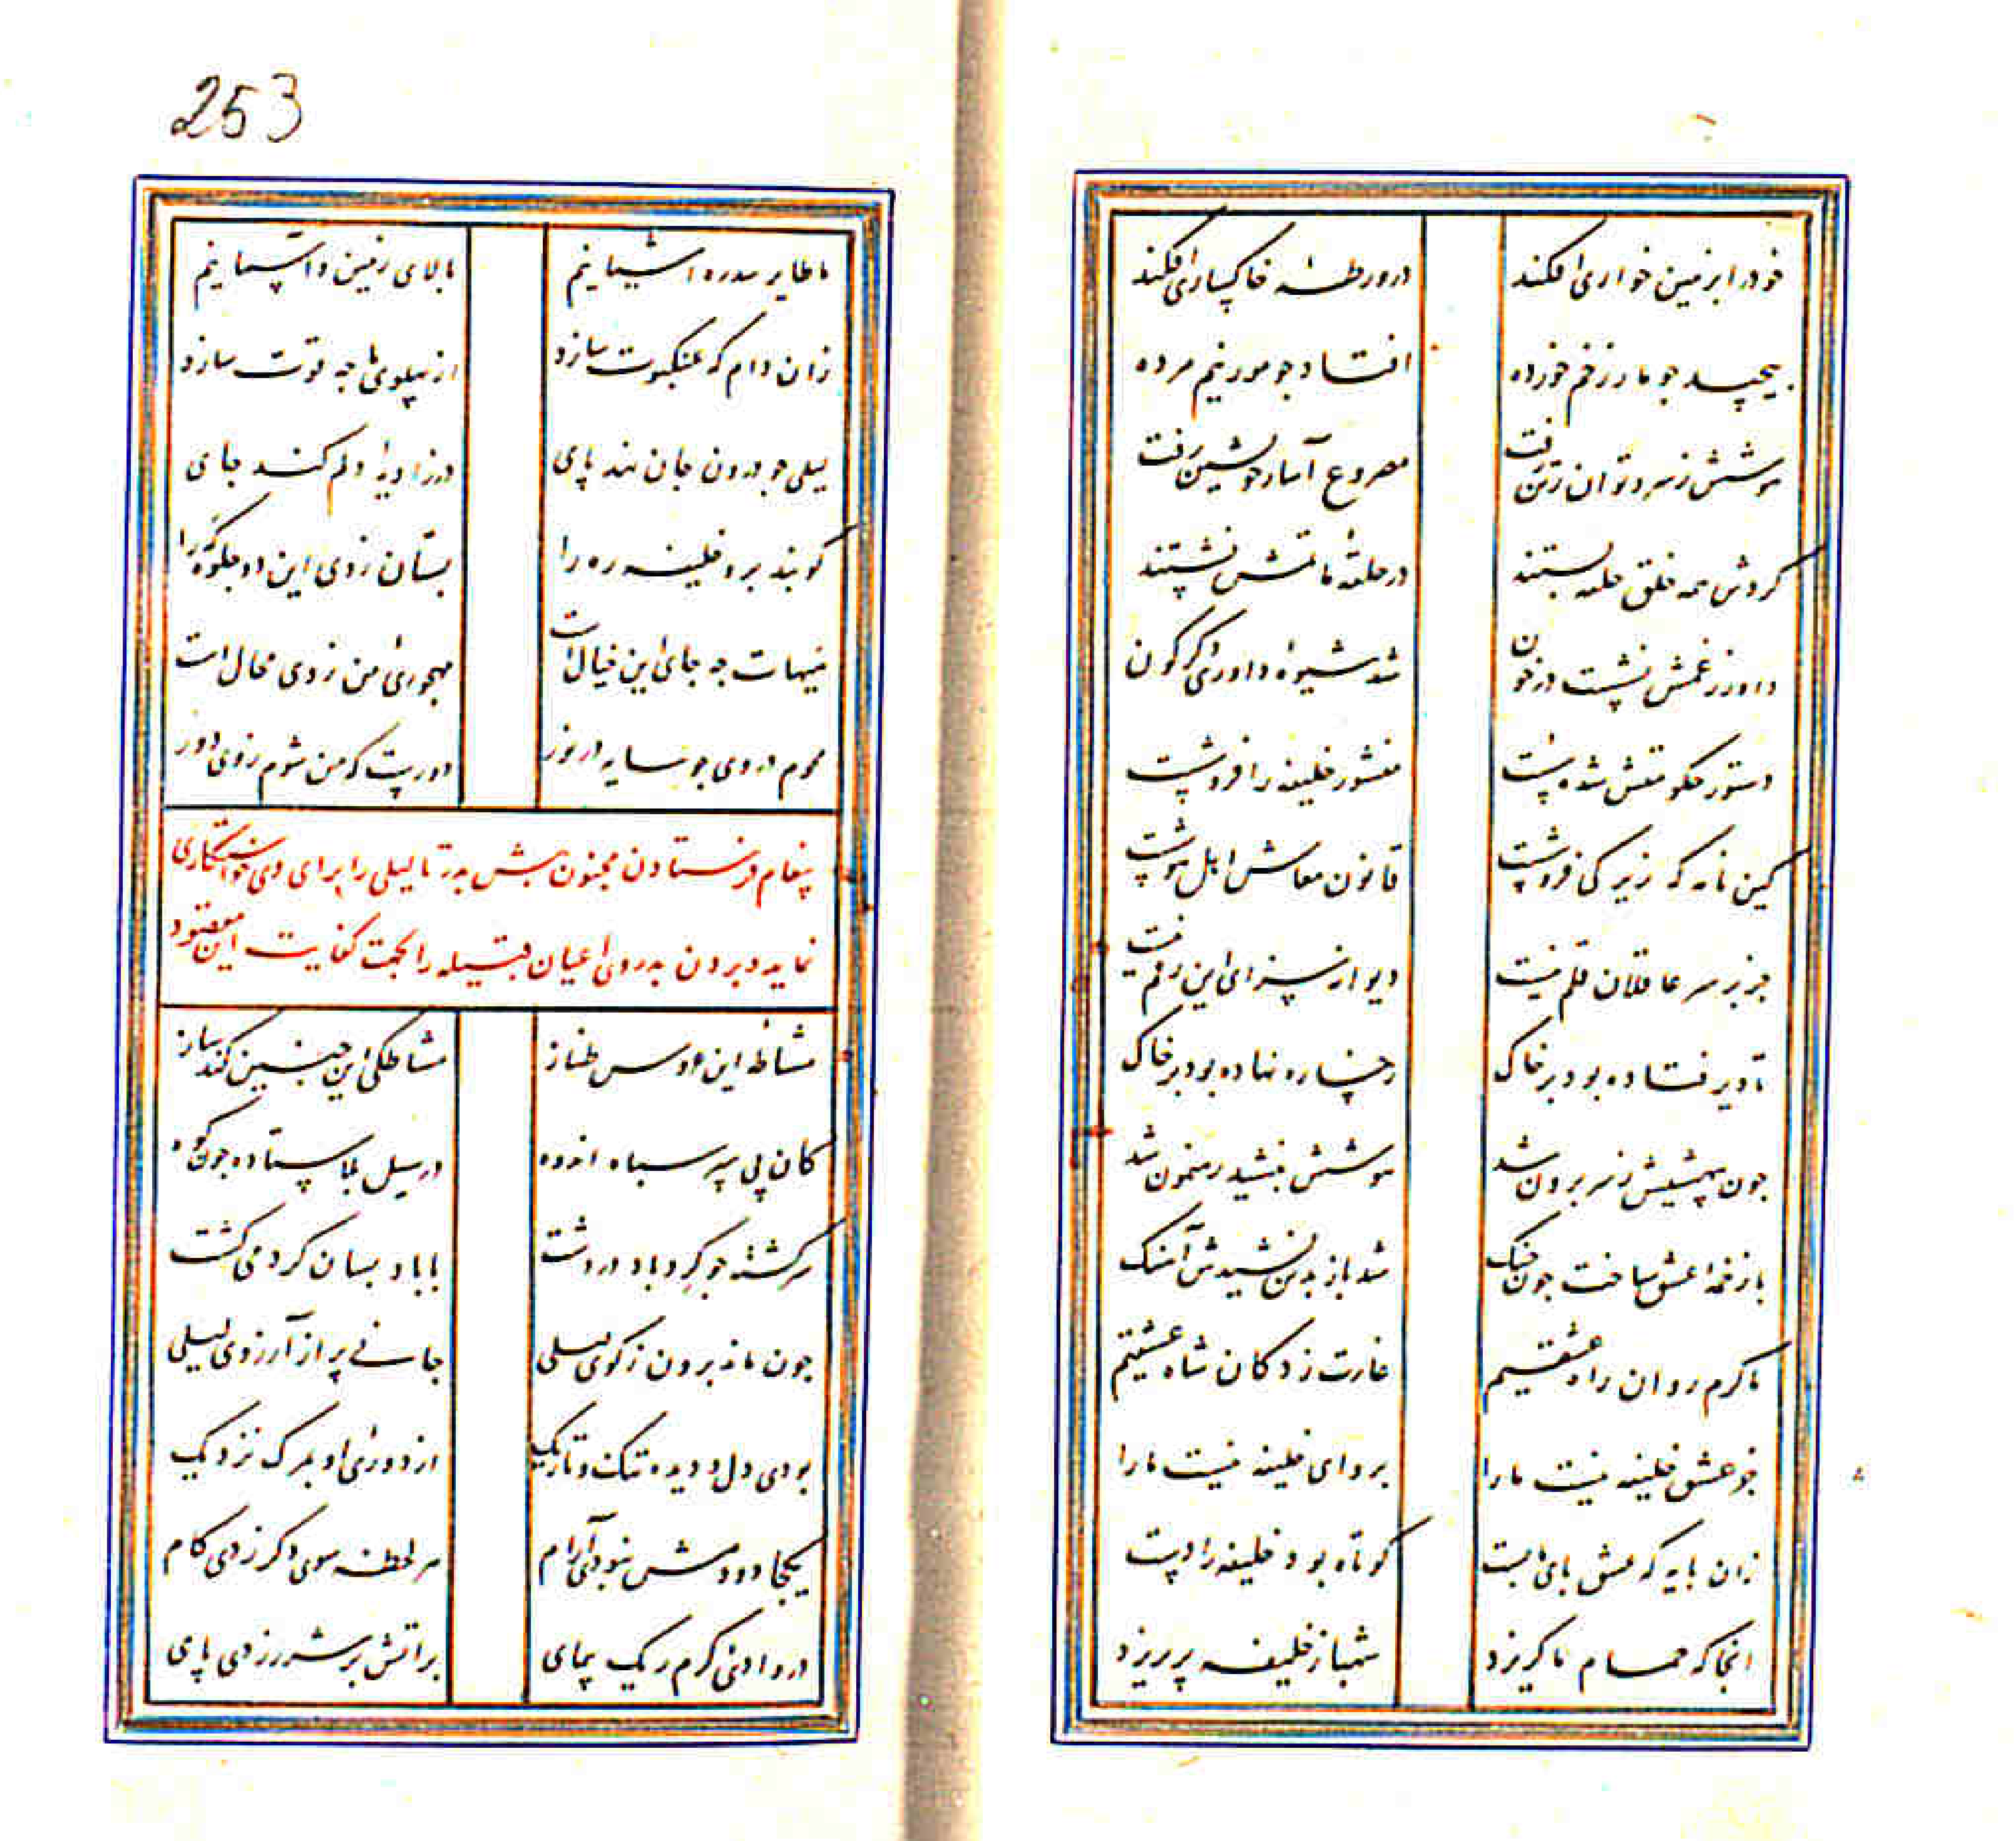 خود را بزمین خواری افکند
در ورطهٔ خاکساری افکند
پیچید چو مار زخم خورده
افتاد چو مور نیم مرده
هوشش ز سر و توان ز تن رفت
مصروع آسا ز خویشتن رفت
گردش همه خلق حلقه بستند
در حلقهٔ ماتمش نشستند
داور ز غمش نشست در خون
شد شیوهٔ داوری دگرگون
دستور حکومتش شده سست
منشور خلیفه را فرو شست
کین نامه که زیرکی فروشست
قانون معاش اهل هوشست
جز بر سر عاقلان قلم نیست
دیوانه سزای این رقم نیست
تا دیر فتاده بود بر خاک
رخساره نهاده بود بر خاک
چون بیهشیش ز سر برون شد
هوشش بنشید رهنمون شد
با زخمهٔ عشق ساخت چون چنگ
شد باز بدین نشیدش آهنگ
ما گرم روان راه عشقیم
غارت زدگان شاه عشقیم
جز عشق خلیفه نیست ما را
پروای خلیفه نیست ما را
زان پایه که عشق پای ما بست
کوتاه بود خلیفه را دست
آنجا که حمام ما گریزد
شهباز خلیفه پر بریزد
253
ما طایر سدره آشیانیم
بالای زمین و آسمانیم
زان دام که عنکبوت سازد
از پهلوی ما چه قوت سازد
لیلی چو درون جان نهد پای
در زاویهٔ دلم کند جای
گویند برو خلیفه ره را
بستان ز وی این دو جلوه‌گه را
هیهات چه جای این خیال است
مهجوری من ز وی محال است
محوم در وی چو سایه در نور
دورست که من شوم ز وی دور
پیغام فرستادن مجنون پیش پدر تا لیلی را برای وی خواستکاری
نماید و بردن پدر وی اعیان قبیله را بجهت کفایت این مقصود
مشاطهٔ این عروس طناز
مشاطکی این چنین کند ساز
کان پی سپر سپاه اندوه
در سیل بلا ستاده چون کوه
سرگشته چو گردباد در دشت
با باد بسان گرد می‌گشت
چون ماند برون ز کوی لیلی
جانی پر از آرزوی لیلی
بودی دل و دیده تنگ و تاریک
از دوری او بمرگ نزدیک
یکجا دو دمش نبودی آرام
هر لحظه سوی دگر زدی گام
در وادی گرم ریگ پیمای
بر آتش پر شرر زدی پای